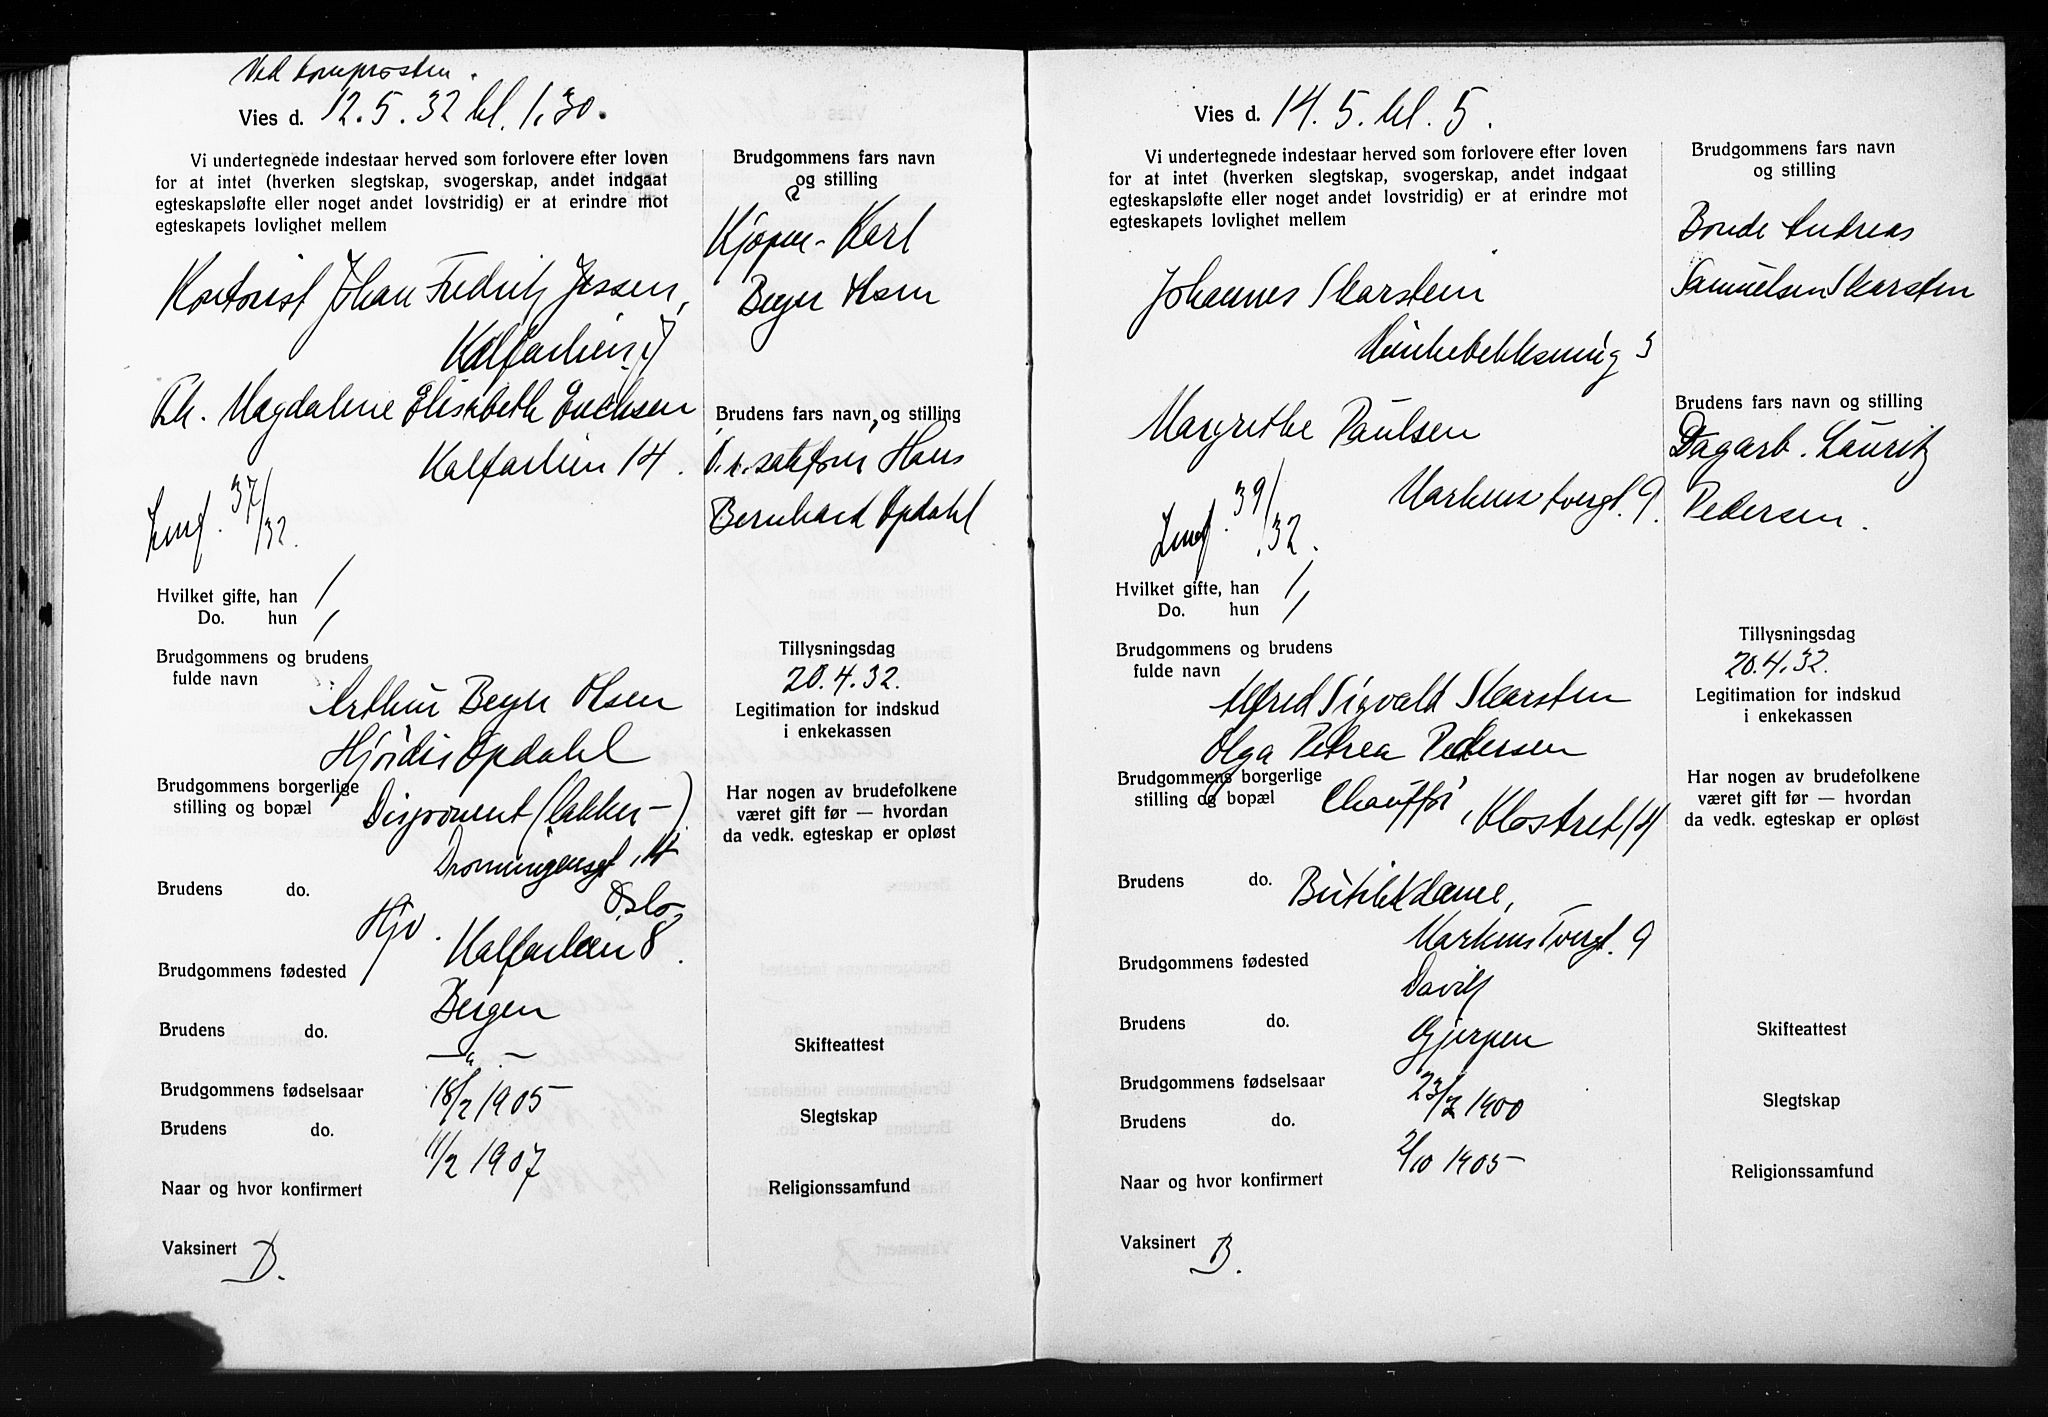 Ved domprosten.
Vies d. 12.5.32 kl. 1.30.
Vi undertegnede indestaar herved som forlovere efter loven
for at intet (hverken slegtskap, svogerskap, andet indgaat
egteskapsløfte eller noget andet lovstridig) er at erindre mot
egteskapets lovlighet mellem
Kontorist Johan Fredrik Jessen,
Kalfarlien
Magdalene Elisabeth Erichsen
Kalfarlien 14.
37/32.
Hvilket gifte, han 1
Do. hun 1
Brudgommens og brudens
fulde navn
Arthur Beyer Olsen
Hjørdis Opdahl
Brudgommens borgerlige
stilling og bopæl Disponent
Dronningensgt. 14
Oslo
Brudens do.
Kalfarlien 8.
Brudgommens fødested
Bergen
Brudens do.
—"—
Brudgommens fødselsaar 18/2 1905
Brudens do.
11/2 1907
Naar og hvor konfirmert
Vaksinert B.
Brudgommens fars navn
og stilling
Kjøpm. Karl
Beyer Olsen
Brudens fars navn og stilling
O.r.sakfører Hans
Bernhard Opdahl
Tillysningsdag
20.4.32.
Legitimation for indskud
i enkekassen
Har nogen av brudefolkene
været gift før — hvordan
da vedk. egteskap er opløst
Skifteattest
Slegtskap
Religionssamfund
Vies d. 14.5. kl. 5.
Vi undertegnede indestaar herved som forlovere efter loven
for at intet (hverken slegtskap, svogerskap, andet indgaat
egteskapsløfte eller noget andet lovstridig) er at erindre mot
egteskapets lovlighet mellem
Johannes Skarstein
Munkebekksmug 3
Margrethe Paulsen
Markens tvergt. 9.
39/32.
Hvilket gifte, han 1
Do. hun 1
Brudgommens og brudens
fulde navn
Alfred Sigvald Skarsten
Olga Petrea Pedersen
Brudgommens borgerlige
stilling og bopæl Chauffør, Klostret 14
Brudens do. Butikkdame,
Markens Tvergt. 9
Brudgommens fødested
Davik
Brudens do.
Gjerpen
Brudgommens fødselsaar 23/2 1900
Brudens do.
2/10 1905
Naar og hvor konfirmert
Vaksinert B.
Brudgommens fars navn
og stilling
Bonde Andreas
Samuelsen Skarsten
Brudens fars navn og stilling
Dagarb. Lauritz
Pedersen.
Tillysningsdag
20.4.32.
Legitimation for indskud
i enkekassen
Har nogen av brudefolkene
været gift før — hvordan
da vedk. egteskap er opløst
Skifteattest
Slegtskap
Religionssamfund